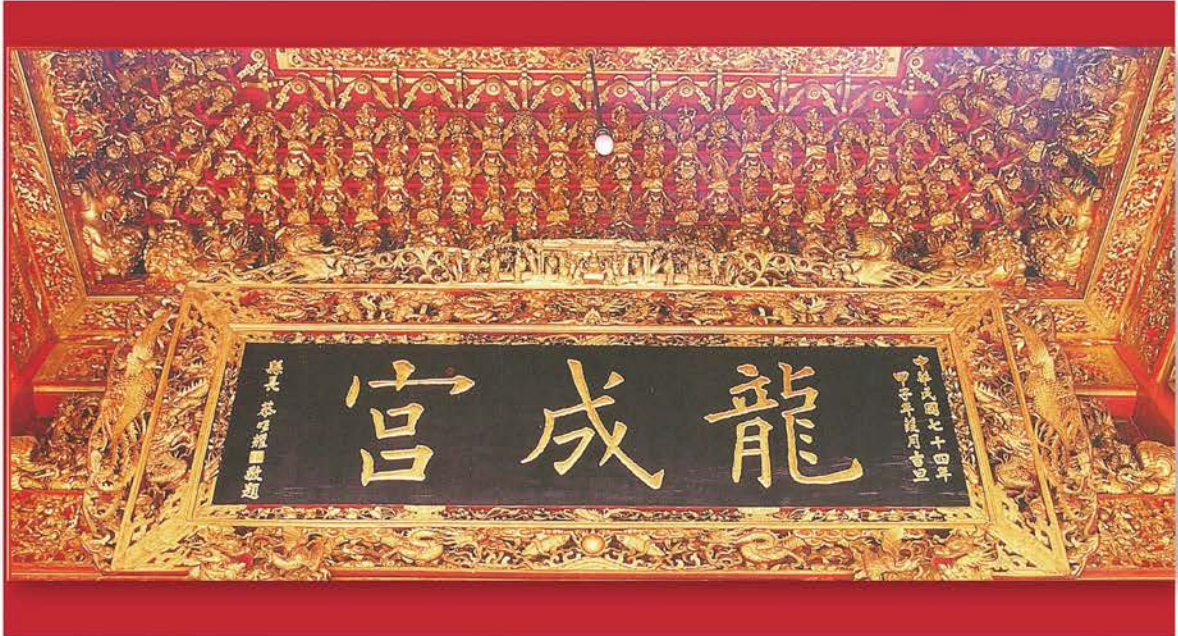 中華民國七十四年
甲子年月吉旦
龍成宮
縣長 蔡明耀 敬題